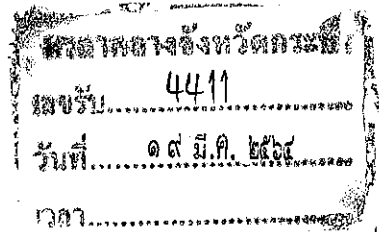 ศาลากลางจังหวัดกระบี่
เลขรับ 4411
วันที่ ๑๙ มี.ค. ๒๕๖๔
เวลา